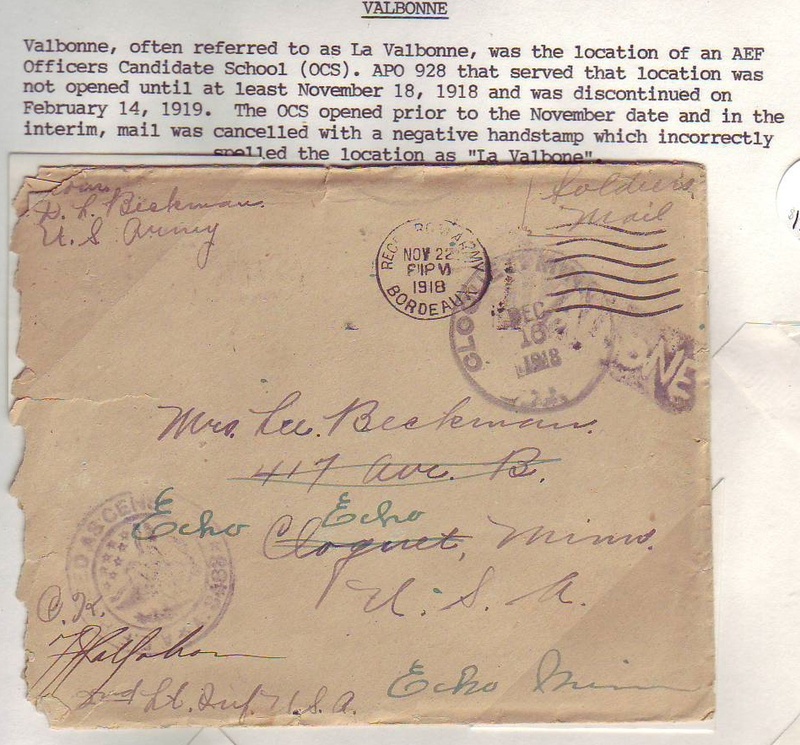 VALBONNE
Valbonne, often referred to as La Valbonne, was the location of an AEF
Officers Candidate School (OCS). APO 928 that served that location was
not opened until at least November 18, 1918 and was discontinued on
February 14, 1919. The OCS opened prior to the November date and in the
interim, mail was cancelled with a negative handstamp which incorrectly
spelled the location as "La Valbone".
From
L. Beckman.
U. S. Army
Soldiers
Mail
NOV 22
1918
BORDEAUX
DEC
16
1918
Mrs. Lee. Beckman.
417 Ave. B.
Echo
Echo
Cloquet, Minn.
U. S. A.
O. K.
2nd Lt. Inf. U. S. A.
Echo Minn